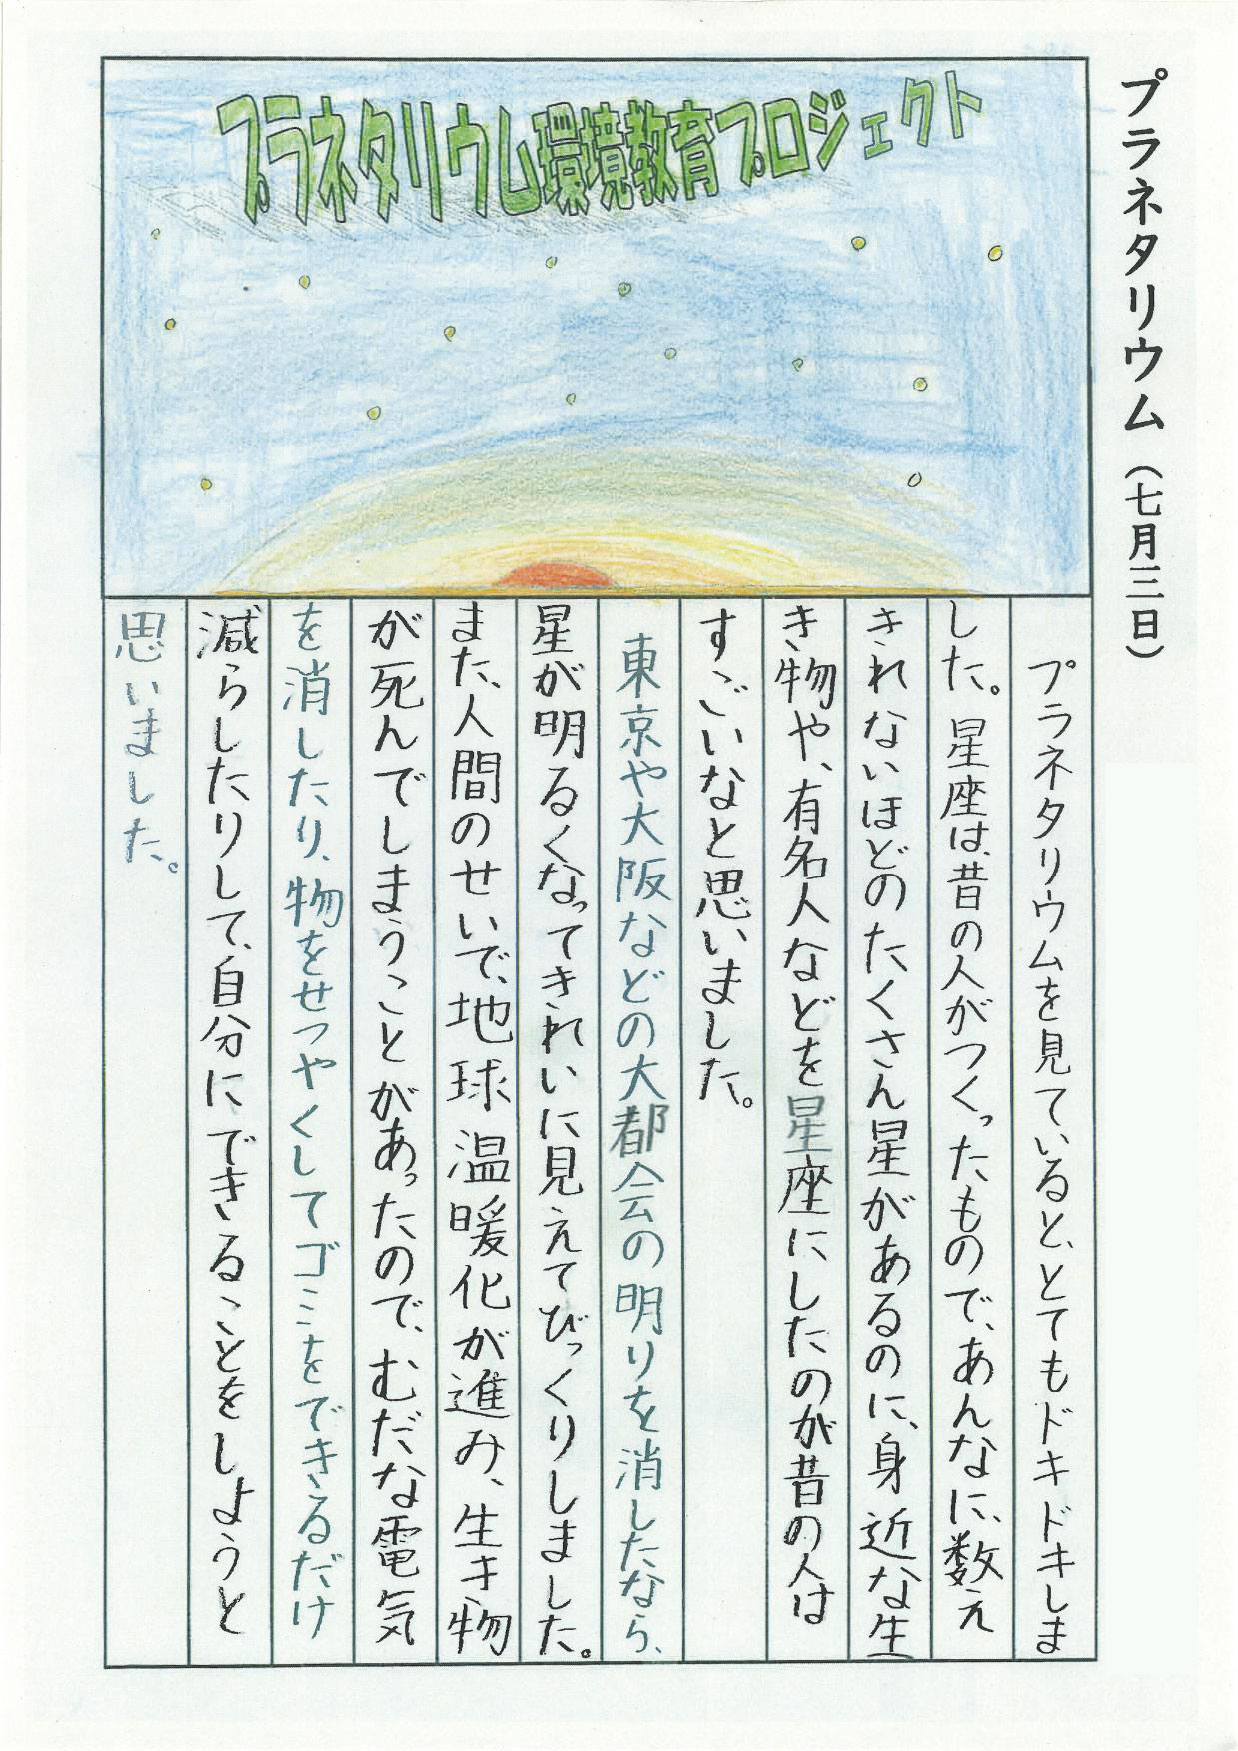 プラネタリウム(七月三日)
プラネタリウム環境教育プロジェクト
プラネタリウムを見ていると、とてもドキドキしま
した。星座は、昔の人がつくったもので、あんなに、数え
きれないほどのたくさん星があるのに、身近な生
き物や、有名人などを星座にしたのが昔の人は
すごいなと思いました。
東京や大阪などの大都会の明りを消したなら、
星が明るくなってきれいに見えてびっくりしました。
また、人間のせいで、地球温暖化が進み、生き物
が死んでしまうことがあったので、むだな電気
を消したり、物をせつやくしてゴミをできるだけ
減らしたりして、自分にできることをしようと
思いました。